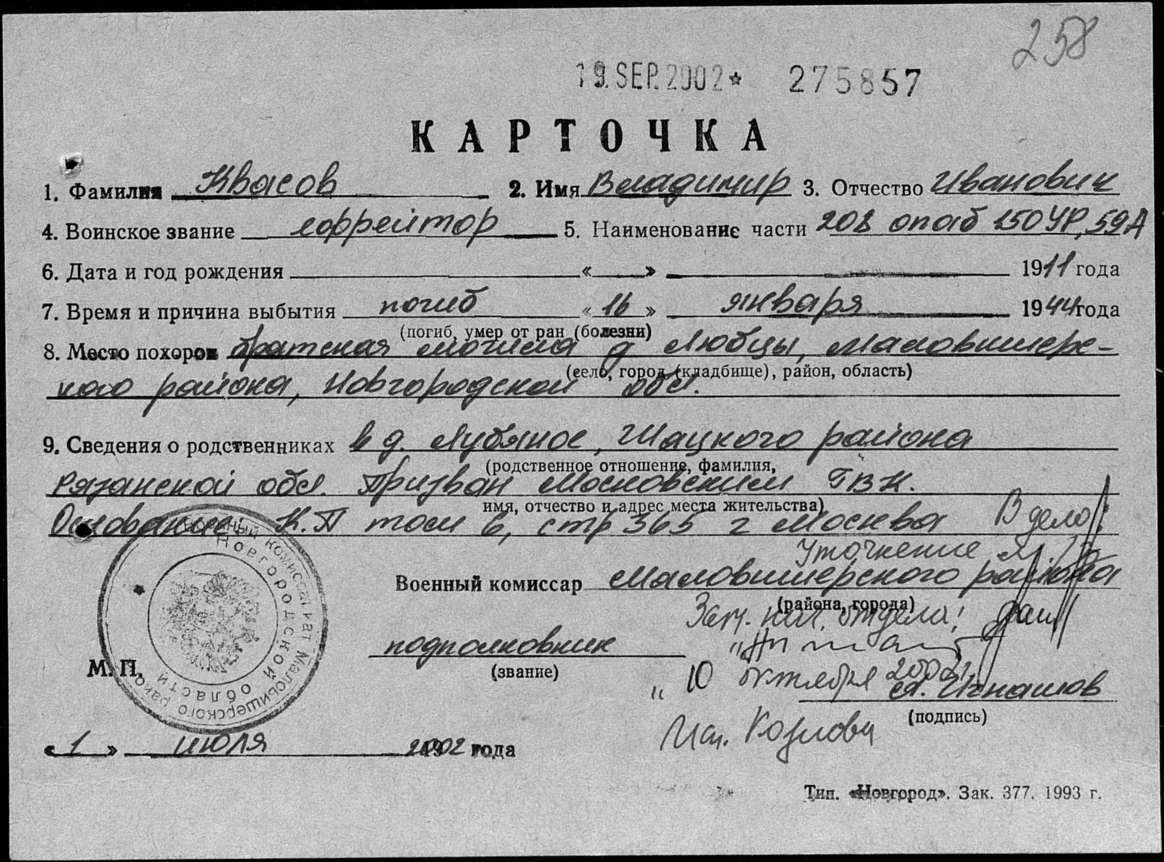 258
19. SEP. 2002* 275857
КАРТОЧКА
1. Фамилия Квасов 2. Имя Владимир 3. Отчество Иванович
4. Воинское звание ефрейтор 5. Наименование части 208 опаб 150 УР, 59А
6. Дата и год рождения « » 1911 года
7. Время и причина выбытия погиб « 16 » января 1944 года
(погиб, умер от ран (болезни)
8. Место похорон братская могила д Любцы, Маловишерс-
кого района, Новгородской обл.
(село, город (кладбище), район, область)
9. Сведения о родственниках в д. Лубяное, Шацкого района
(родственное отношение, фамилия,
Рязанской обл. Призван Московским ГВК.
имя, отчество и адрес места жительства)
К.П том 6, стр 365 г Москва В дело:
Уточнение
Военный комиссар Маловишерского района
(района, города)
Зам. нач. отдела:
подполковник
(звание)
М. П.
Военный комиссариат Маловишерского района
Новгородской области
" 10 октября 2002
А. Игнашов
(подпись)
« 1 » июля 2002 года
Исп. Козлова
Тип. «Новгород». Зак. 377. 1993 г.